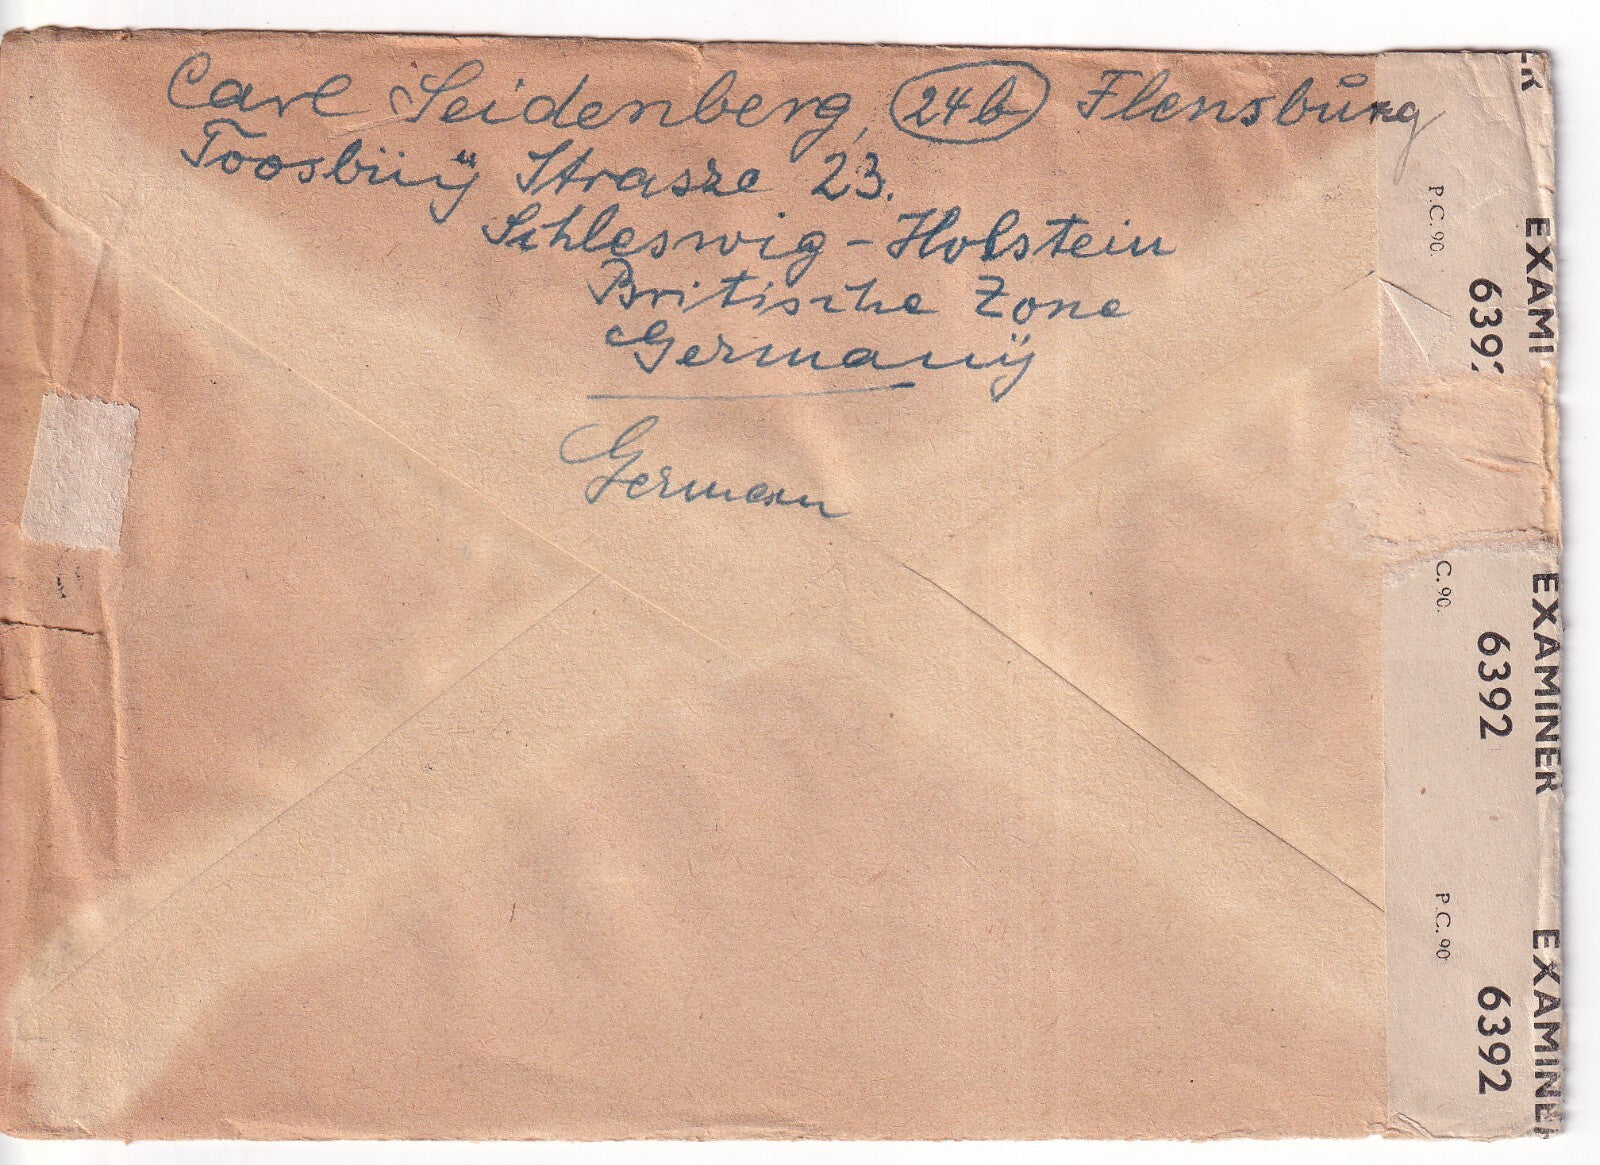 Carl Seidenberg, 24b Flensburg
Toosbüÿ Strasze 23.
Schleswig-Holstein
Britische Zone
Germanÿ
German
ER
P.C. 90.
EXAMI
639
C. 90.
EXAMINER
6392
P.C. 90
EXAMINER
6392